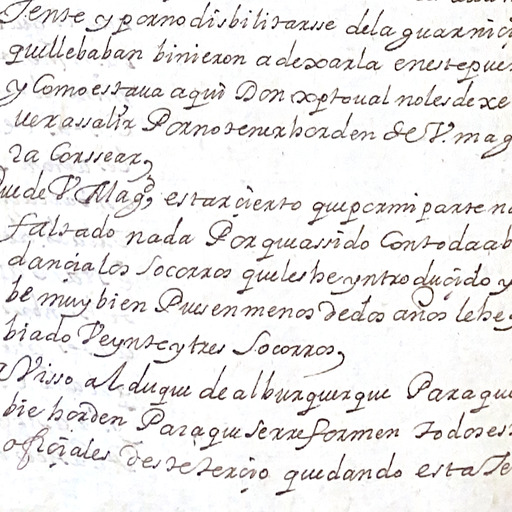 Tente y por no disbilitarsse de la guarniçi
qui llebaban binieron a dexarla en este puer
y Como estaua aqui Don xptoual no les dexe
uer assalir Por no tener horden de V. mag
ra Corssear,
Puede V. Magd, estar çierto que por mi parte no
faltado nada Por que assido Con toda ab
dançia los Socorros que les he yntroduçido y
be muy bien Pues en menos de dos años le he
biado Veynte y tres Socorros,
a Visso al duque de alburquerque Para que
bie horden Para que se rreformen todos es
ofiçiales deste terçio quedando esta Te